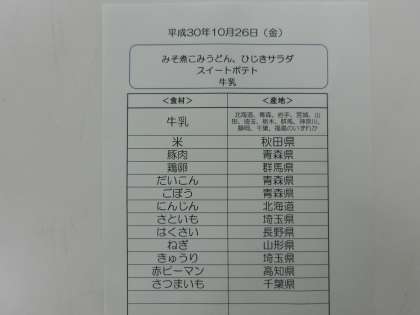 平成30年10月26日（金）
みそ煮こみうどん、ひじきサラダ
スイートポテト
牛乳
＜食材＞ ＜産地＞
牛乳 北海道、青森、岩手、宮城、山
形、埼玉、栃木、群馬、神奈川、
静岡、千葉、福島のいずれか
米 秋田県
豚肉 青森県
鶏卵 群馬県
だいこん 青森県
ごぼう 青森県
にんじん 北海道
さといも 埼玉県
はくさい 長野県
ねぎ 山形県
きゅうり 埼玉県
赤ピーマン 高知県
さつまいも 千葉県